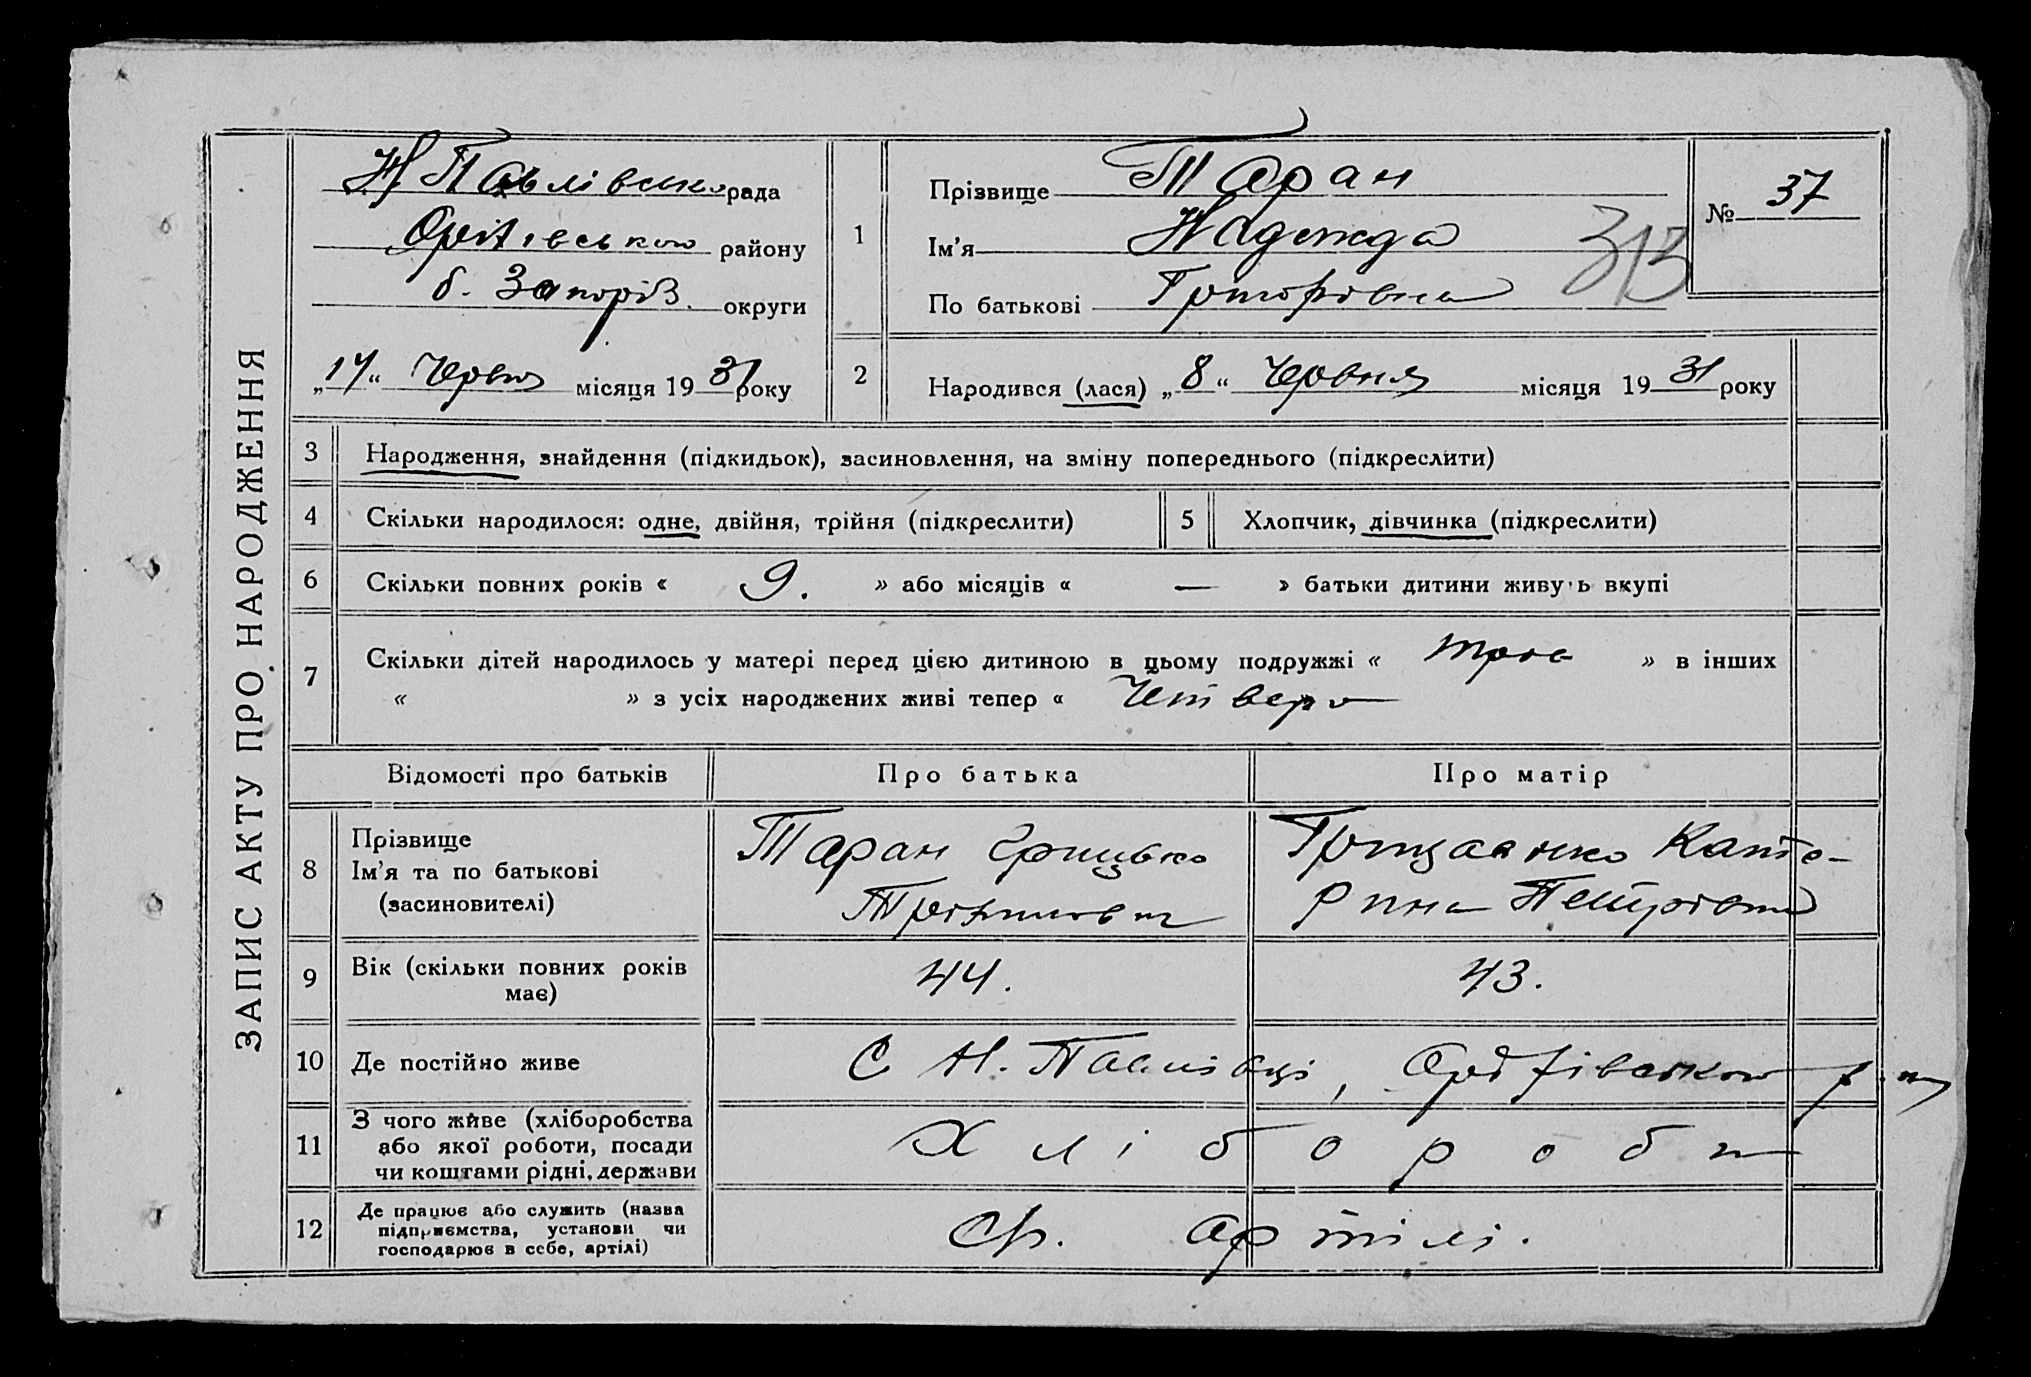 ЗАПИС АКТУ ПРО НАРОДЖЕННЯ
Н Павлівська рада
Оріхівського району
б. Запоріз. округи
„14“ Червня місяця 1931 року
1
Прізвище Таран
Ім'я Надежда
По батькові Григорівна
№ 37
313
2
Народився (лася) „8“ Червня місяця 1931 року
3 Народження, знайдення (підкидьок), засиновлення, на зміну попереднього (підкреслити)
4 Скільки народилося: одне, двійня, трійня (підкреслити)
5 Хлопчик, дівчинка (підкреслити)
6 Скільки повних років « 9. » або місяців « — » батьки дитини живуть вкупі
7 Скільки дітей народилось у матері перед цією дитиною в цьому подружжі « троє » в інших
« » з усіх народжених живі тепер « Четверо
Відомості про батьків Про батька Про матір
8 Прізвище
Ім'я та по батькові
(засиновителі)
Таран Грицько
Катерина Петрівна
9 Вік (скільки повних років
має)
44. 43.
10 Де постійно живе С Н. Павлівці, Оріхівського р-ну
11 З чого живе (хліборобства
або якої роботи, посади
чи коштами рідні, держави
Хлібороби
12 Де працює або служить (назва
підприємства, установи чи
господарює в себе, артілі)
артілі.